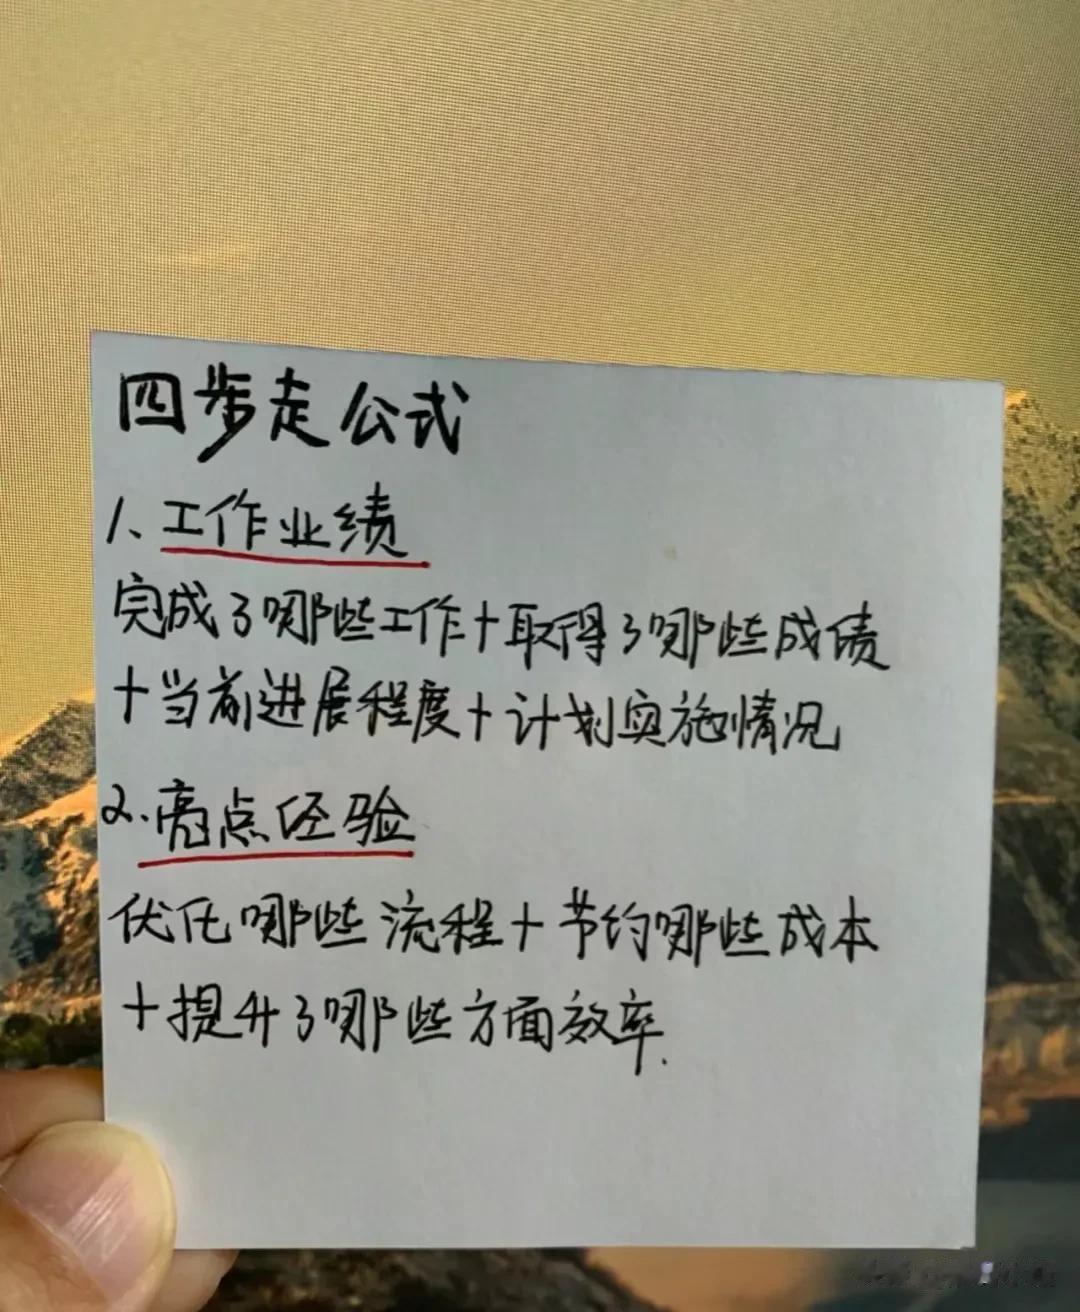 四步走公式
1、工作业绩
完成了哪些工作+取得了哪些成绩
+当前进展程度+计划实施情况
2.亮点经验
优化哪些流程+节约哪些成本
+提升了哪些方面效率.